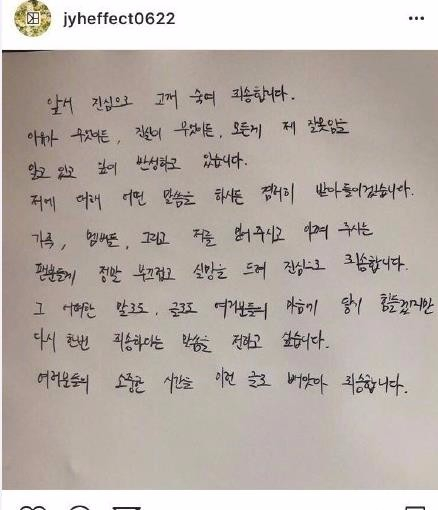 jyheffect0622
앞서 진심으로 고개 숙여 죄송합니다.
이유가 무엇이든, 진실이 무엇이든, 모든게 제 잘못임을
알고 있고 깊이 반성하고 있습니다.
저에 대해 어떤 말씀을 하시든 겸허히 받아들이겠습니다.
가족, 멤버들, 그리고 저를 믿어주시고 아껴 주시는
팬분들께 정말 부끄럽고 실망을 드려 진심으로 죄송합니다.
그 어떠한 말로도, 글로도 여러분들의 마음기 닿기 힘들겠지만
다시 한번 죄송하다는 말씀을 전하고 싶습니다.
여러분들의 소중한 시간을 이런 글로 빼앗아 죄송합니다.